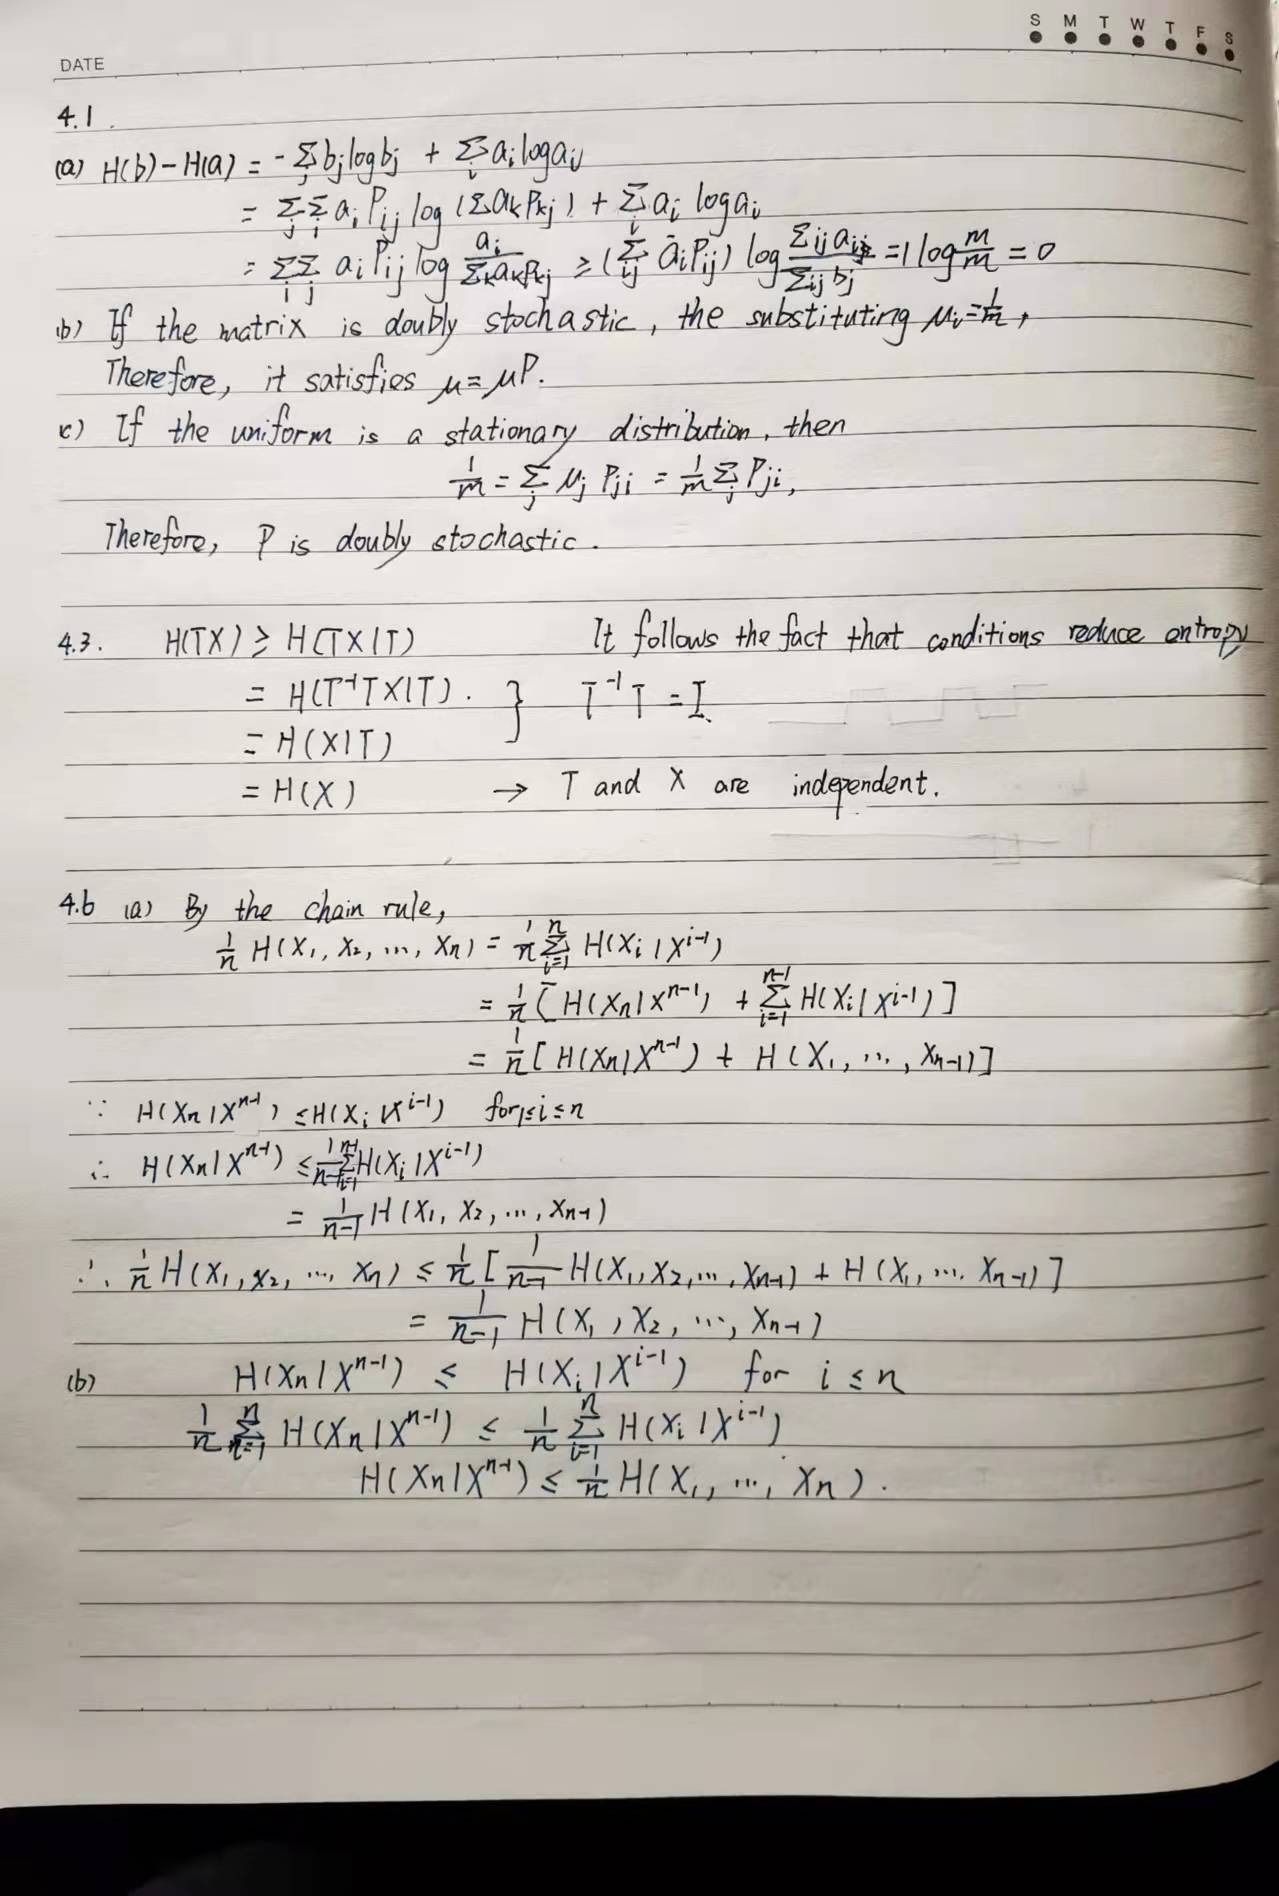 S M T W T F S
DATE
4.1.
(a) H(b)-H(a) = -∑_j b_j log b_j + ∑_i a_i log a_i
= ∑_j ∑_i a_i P_ij log (∑ a_k P_kj) + ∑_i a_i log a_i
= ∑_i ∑_j a_i P_ij log \frac{a_i}{∑_k a_k P_kj} ≥ (∑_ij a_i P_ij) log \frac{∑_ij a_i}{∑_ij b_j} = 1 log \frac{m}{m} = 0
(b) If the matrix is doubly stochastic, the substituting μ_i = \frac{1}{m},
Therefore, it satisfies μ = μP.
(c) If the uniform is a stationary distribution, then
\frac{1}{m} = ∑_j μ_j P_ji = \frac{1}{m} ∑_j P_ji,
Therefore, P is doubly stochastic.
4.3. H(TX) ≥ H(TX|T) It follows the fact that conditions reduce entropy
= H(T^{-1}TX|T). } T^{-1}T = I.
= H(X|T)
= H(X) → T and X are independent.
4.6 (a) By the chain rule,
\frac{1}{n} H(X_1, X_2, ..., X_n) = \frac{1}{n} ∑_{i=1}^{n} H(X_i | X^{i-1})
= \frac{1}{n} [H(X_n | X^{n-1}) + ∑_{i=1}^{n-1} H(X_i | X^{i-1})]
= \frac{1}{n} [H(X_n | X^{n-1}) + H(X_1, ..., X_{n-1})]
∵ H(X_n | X^{n-1}) ≤ H(X_i | X^{i-1}) for 1≤i≤n
∴ H(X_n | X^{n-1}) ≤ \frac{1}{n-1} ∑_{i=1}^{n-1} H(X_i | X^{i-1})
= \frac{1}{n-1} H(X_1, X_2, ..., X_{n-1})
∴ \frac{1}{n} H(X_1, X_2, ..., X_n) ≤ \frac{1}{n} [\frac{1}{n-1} H(X_1, X_2, ..., X_{n-1}) + H(X_1, ..., X_{n-1})]
= \frac{1}{n-1} H(X_1, X_2, ..., X_{n-1})
(b) H(X_n | X^{n-1}) ≤ H(X_i | X^{i-1}) for i ≤ n
\frac{1}{n} ∑_{n=1}^{n} H(X_n | X^{n-1}) ≤ \frac{1}{n} ∑_{i=1}^{n} H(X_i | X^{i-1})
H(X_n | X^{n-1}) ≤ \frac{1}{n} H(X_1, ..., X_n).